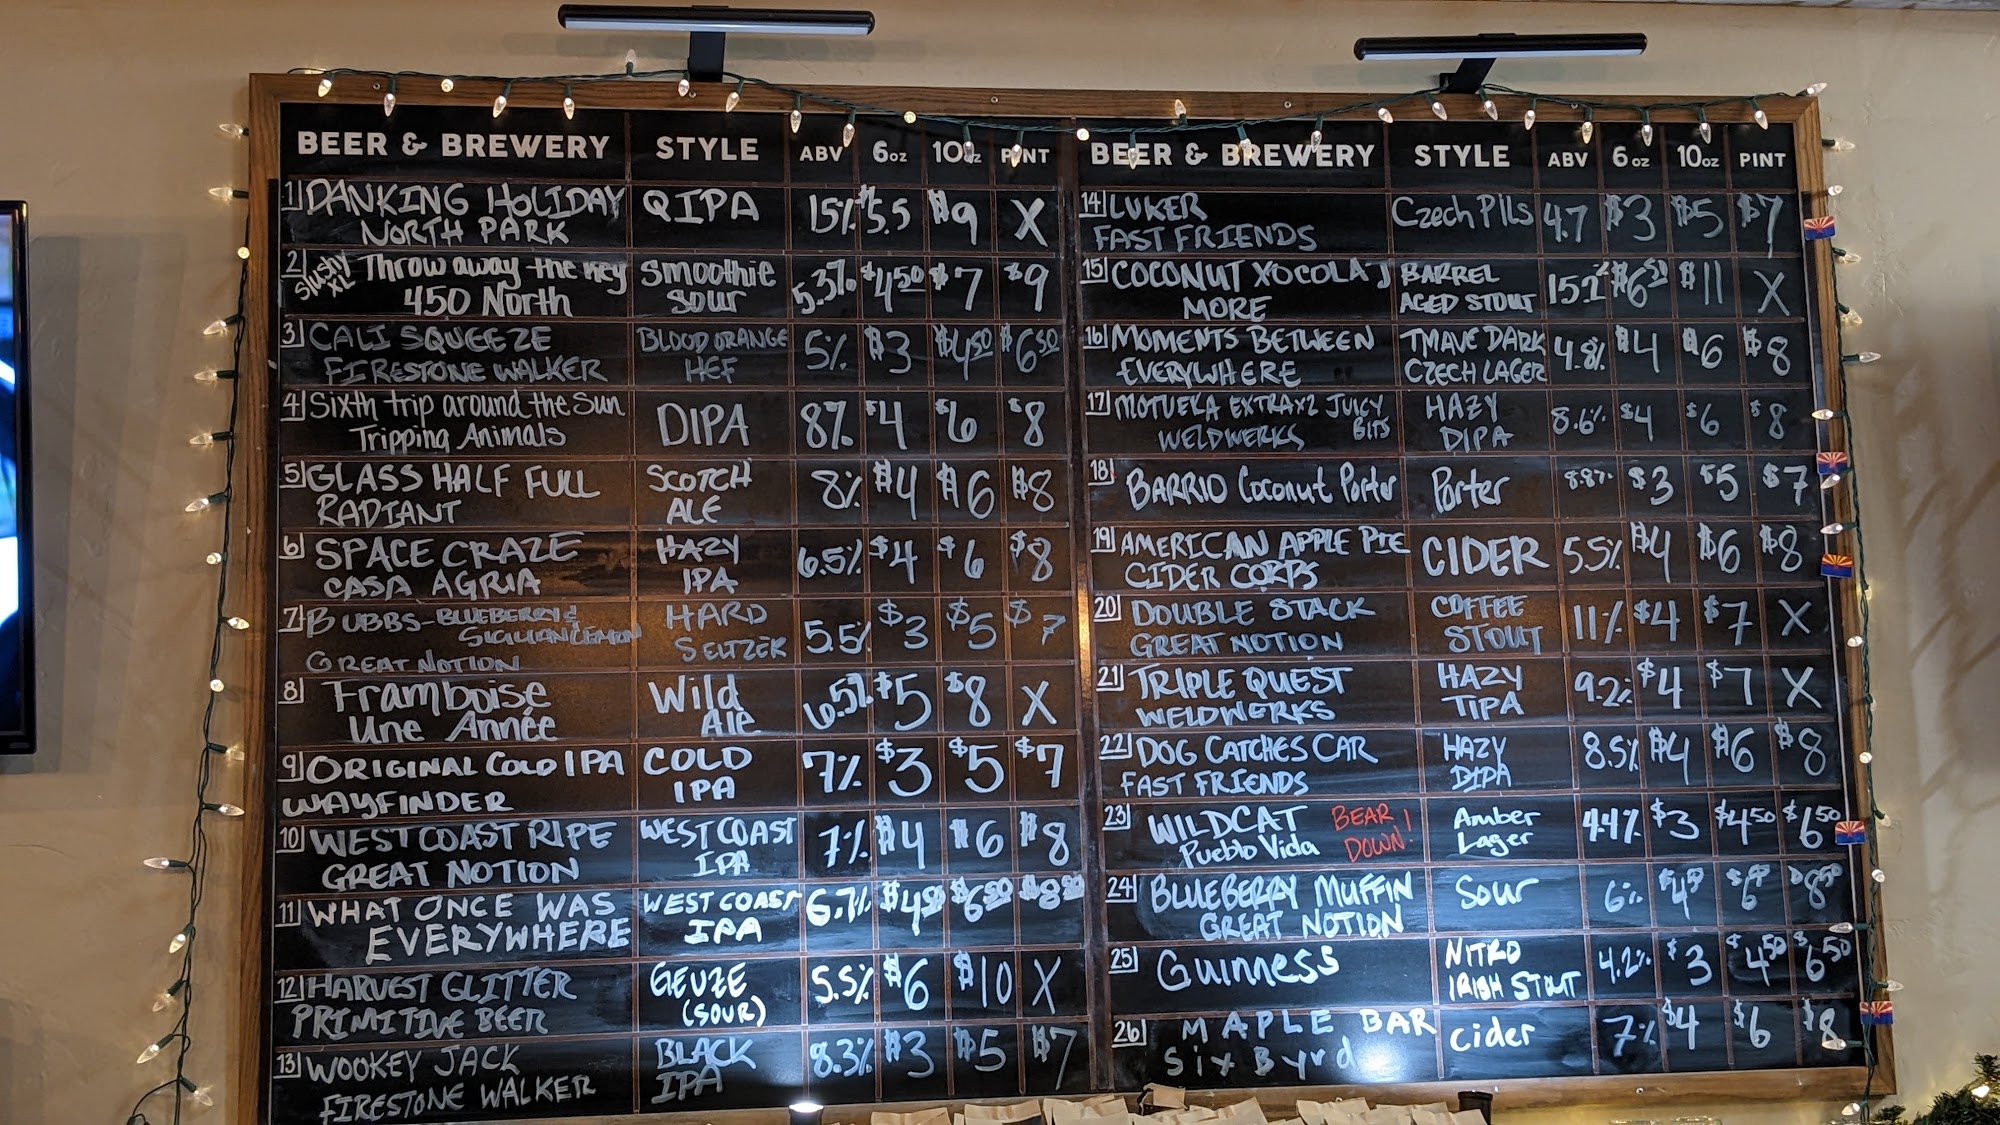 BEER & BREWERY STYLE ABV 6oz 10oz PINT
1 DANKING HOLIDAY QIPA 15% $5.5 $9 X
NORTH PARK
2 Slushy XL Throw away the key Smoothie Sour 5.3% $4.50 $7 $9
450 North
3 CALI SQUEEZE BLOOD ORANGE HEF 5% $3 $4.50 $6.50
FIRESTONE WALKER
4 Sixth trip around the Sun DIPA 8% $4 $6 $8
Tripping Animals
5 GLASS HALF FULL SCOTCH ALE 8% $4 $6 $8
RADIANT
6 SPACE CRAZE HAZY IPA 6.5% $4 $6 $8
CASA AGRIA
7 BUBBS-BLUEBERRY & HARD SELTZER 5.5% $3 $5 $7
SICILIAN LEMON
GREAT NOTION
8 Framboise Wild Ale 6.5% $5 $8 X
Une Année
9 ORIGINAL COLD IPA COLD IPA 7% $3 $5 $7
WAYFINDER
10 WEST COAST RIPE WEST COAST IPA 7% $4 $6 $8
GREAT NOTION
11 WHAT ONCE WAS WEST COAST IPA 6.7% $4.50 $6.50 $8.50
EVERYWHERE
12 HARVEST GLITTER GEUZE (SOUR) 5.5% $6 $10 X
PRIMITIVE BEER
13 WOOKEY JACK BLACK IPA 8.3% $3 $5 $7
FIRESTONE WALKER
BEER & BREWERY STYLE ABV 6oz 10oz PINT
14 LUKER Czech Pils 4.7 $3 $5 $7
FAST FRIENDS
15 COCONUT XOCOLAT BARREL AGED STOUT $6.50 $11 X
MORE
16 MOMENTS BETWEEN TMAVE DARK CZECH LAGER 4.8% $4 $6 $8
EVERYWHERE
17 MOTUEKA EXTRA X2 JUICY BITS HAZY DIPA 8.6% $4 $6 $8
WELDWERKS
18 BARRIO Coconut Porter Porter 8.8% $3 $5 $7
19 AMERICAN APPLE PIE CIDER 5.5% $4 $6 $8
CIDER CORPS
20 DOUBLE STACK COFFEE STOUT 11% $4 $7 X
GREAT NOTION
21 TRIPLE QUEST HAZY TIPA 9.2% $4 $7 X
WELDWERKS
22 DOG CATCHES CAR HAZY DIPA 8.5% $4 $6 $8
FAST FRIENDS
23 WILDCAT BEAR DOWN! Amber Lager 4.4% $3 $4.50 $6.50
Pueblo Vida
24 BLUEBERRY MUFFIN Sour 6% $4.50 $6.50 $8.50
GREAT NOTION
25 Guinness NITRO IRISH STOUT 4.2% $3 $4.50 $6.50
26 MAPLE BAR cider 7% $4 $6 $8
Six Byrd